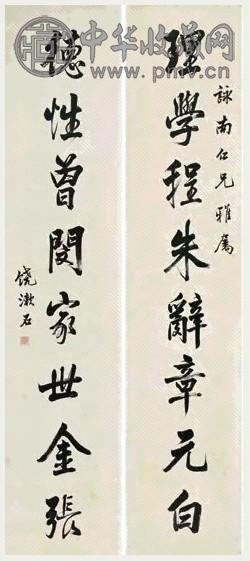 中华收藏网
詠南仁兄雅属
理學程朱辭章元白
德性曾閔家世金張
饶漱石